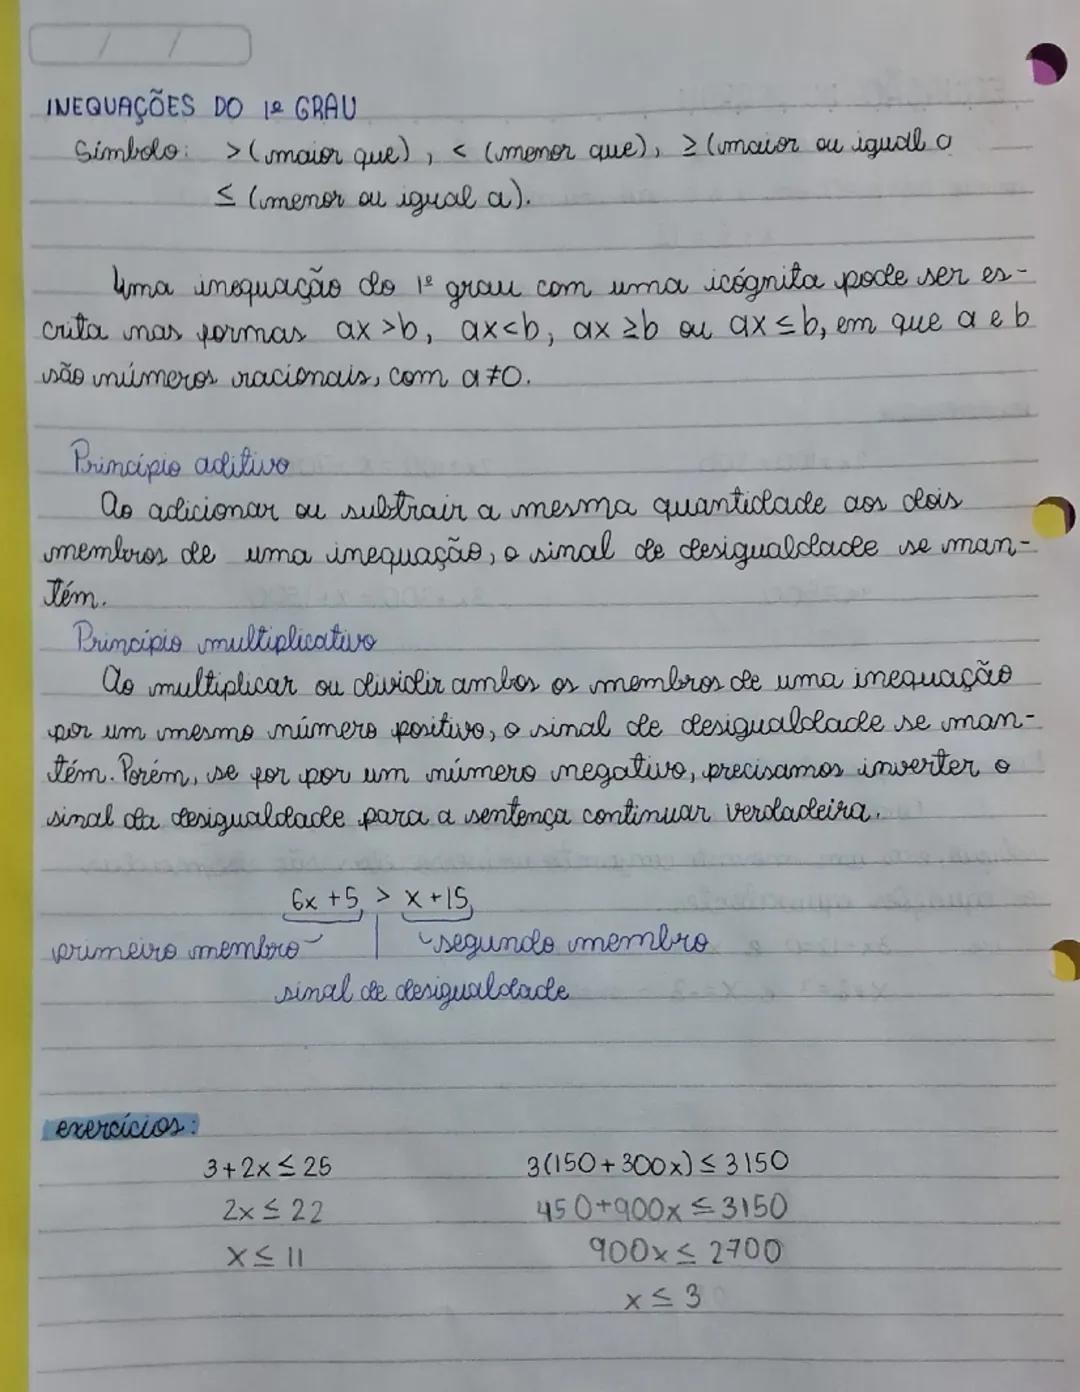 / /
INEQUAÇÕES DO 1º GRAU
Símbolo: > (maior que), < (menor que), ≥ (maior ou igual a
≤ (menor ou igual a).
Uma inequação do 1º grau com uma icógnita pode ser es-
crita nas formas ax >b, ax<b, ax ≥b ou ax ≤b, em que a e b
são números racionais, com a≠0.
Princípio aditivo
Ao adicionar ou subtrair a mesma quantidade aos dois
membros de uma inequação, o sinal de desigualdade se man-
tém.
Princípio multiplicativo
Ao multiplicar ou dividir ambos os membros de uma inequação
por um mesmo número positivo, o sinal de desigualdade se man-
tém. Porém, se for por um número negativo, precisamos inverter o
sinal da desigualdade para a sentença continuar verdadeira.
6x +5 > x +15
primeiro membro segundo membro
sinal de desigualdade
exercícios:
3+2x ≤ 25 3(150+300x) ≤ 3150
2x ≤ 22 450+900x ≤ 3150
x ≤ 11 900x ≤ 2700
x ≤ 3